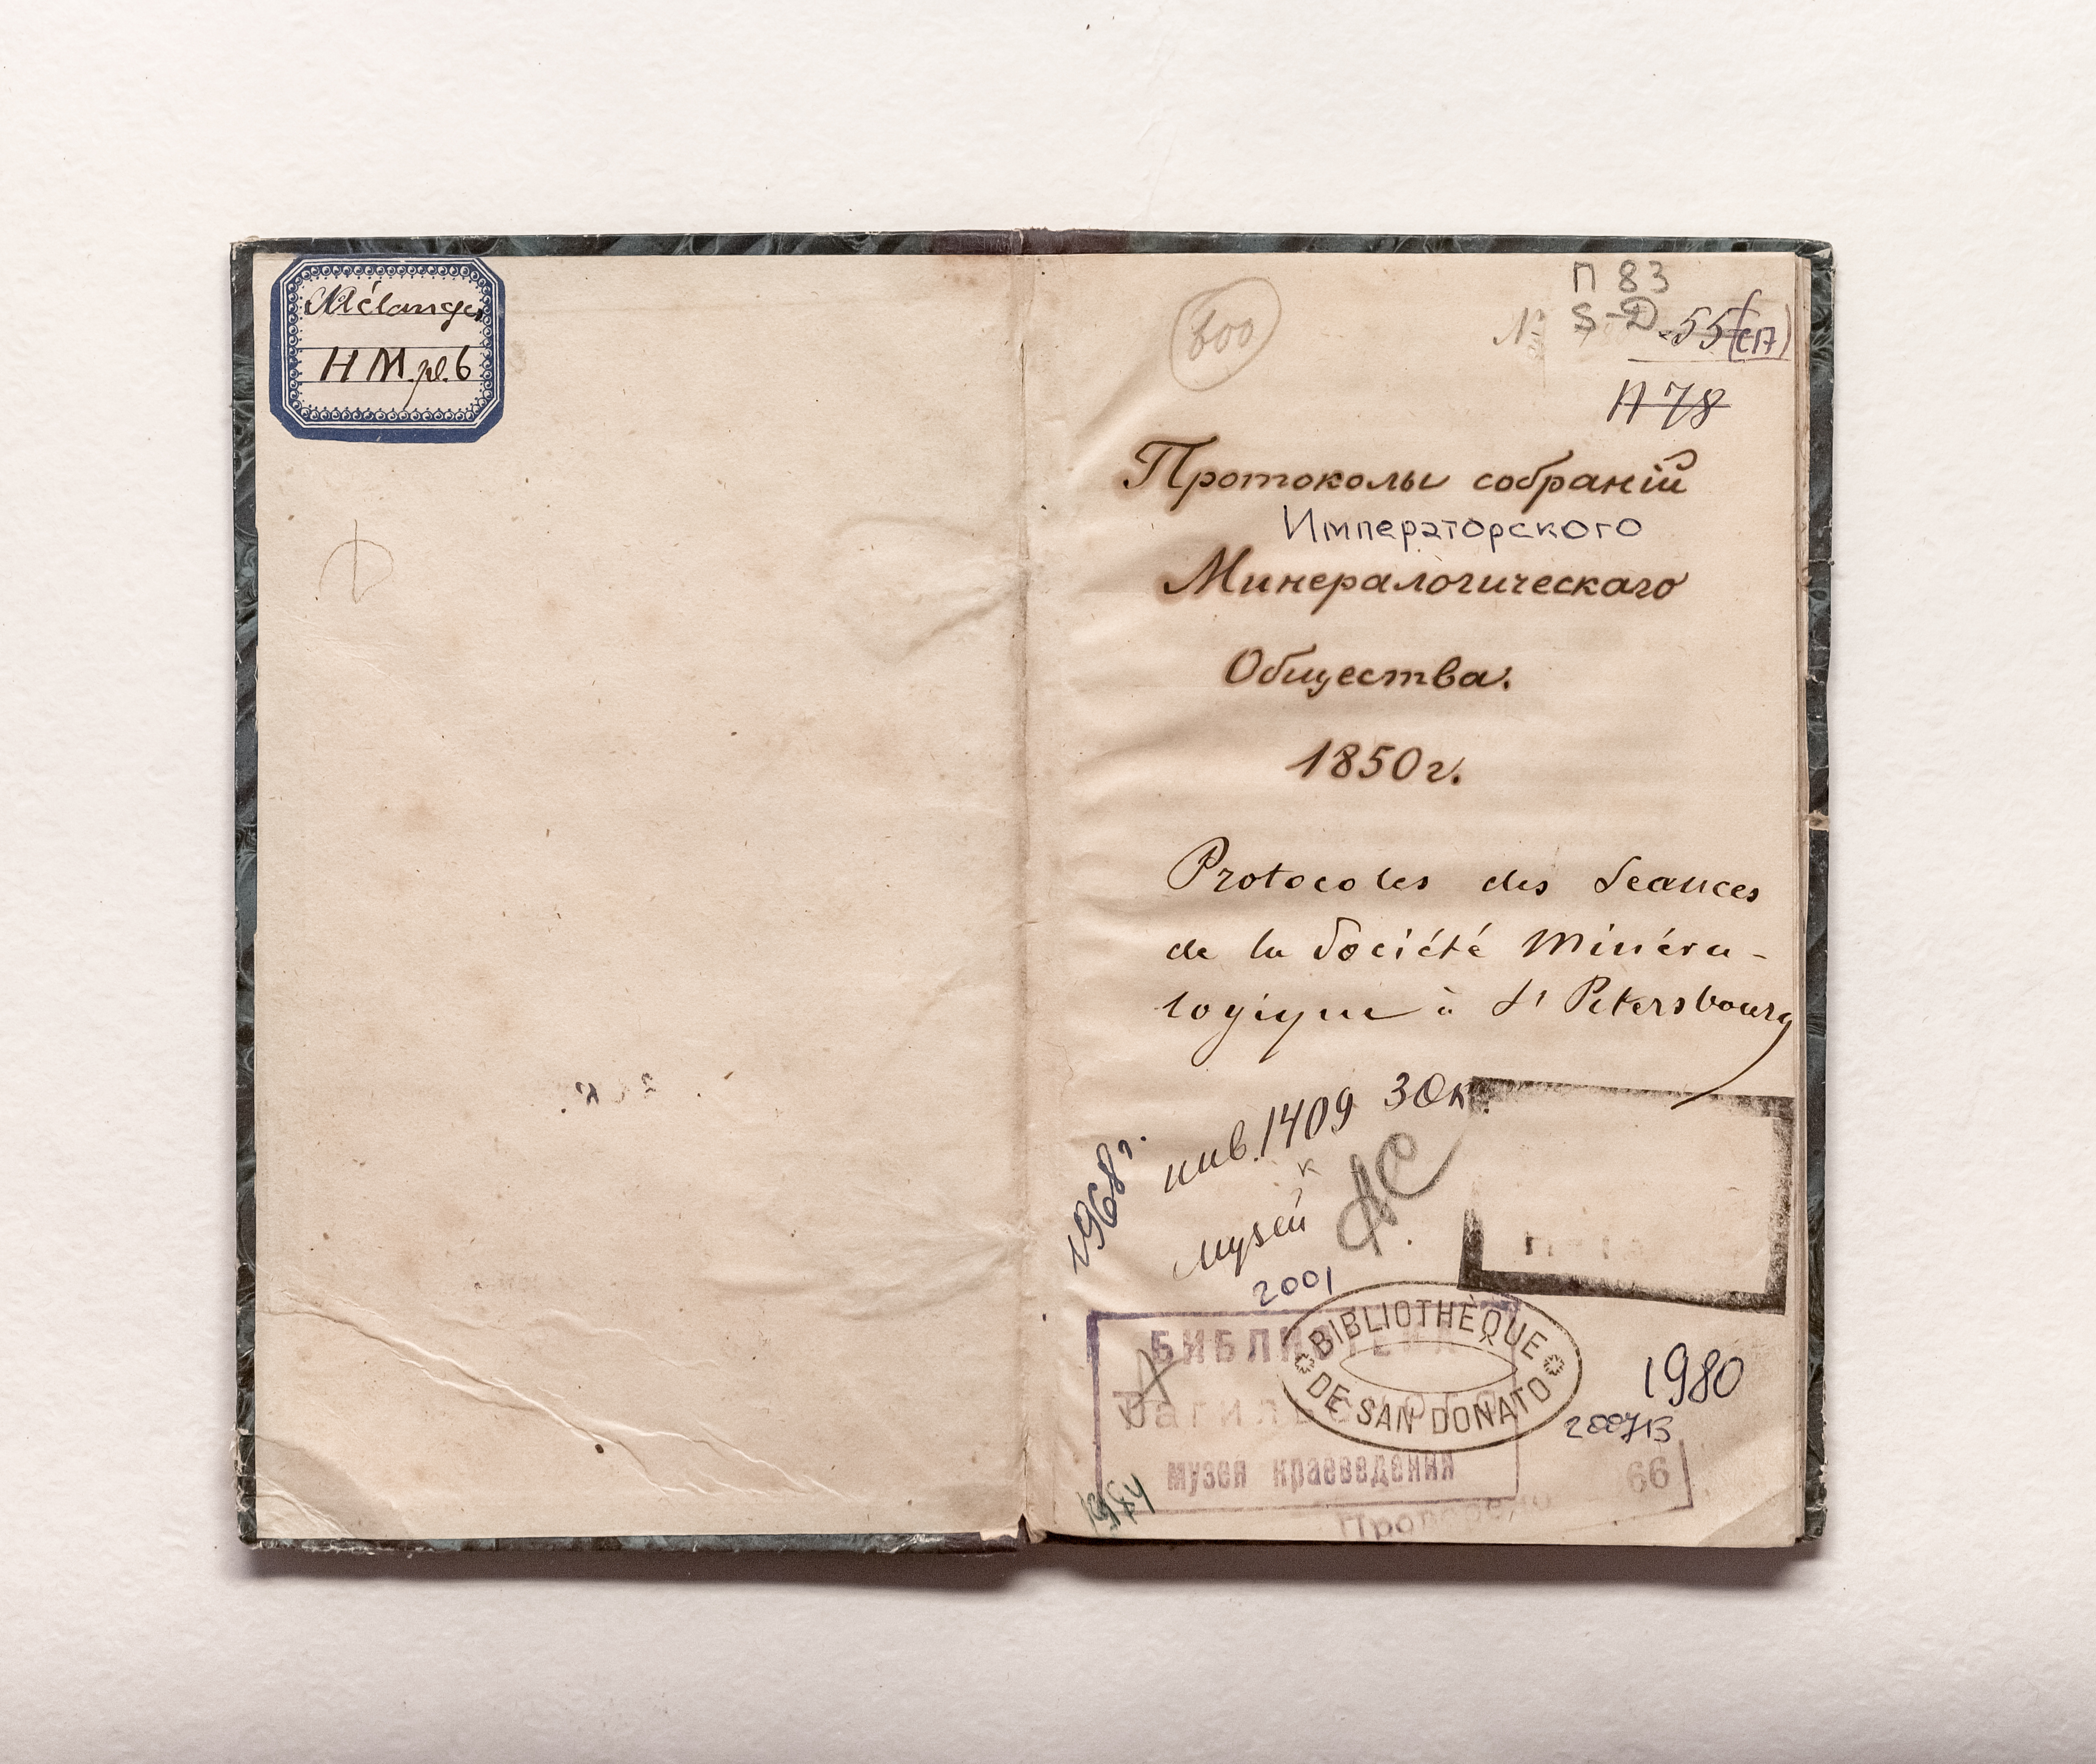 Mélanges
H M.pl.6
600
П 83
№ S-D 55(с17)
П 78
Протоколы собранiй
Императорского
Минералогическаго
Общества.
1850 г.
Protocoles des Seances
de la Société Minéra-
logique à St Petersbourg
инв. 1409 30к.
1968 г.
Музей
АС
2001
БИБЛИОТЕКА
Тагильского
музея краеведения
BIBLIOTHÈQUE
DE SAN DONATO
1980
2007
66
Проверено